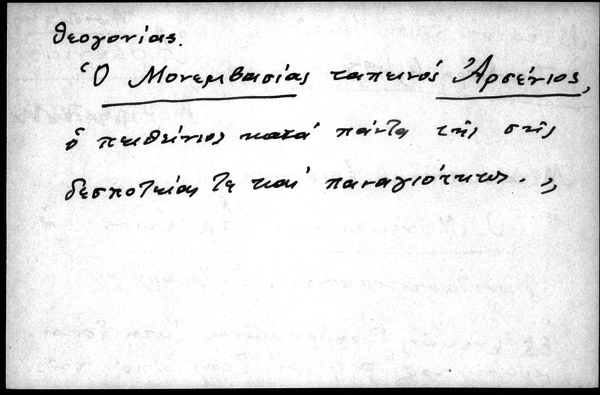 θεογονίας.
Ὁ Μονεμβασίας ταπεινός Ἀρσένιος,
ὁ πειθήνιος κατά πάντα τῆς σῆς
δεσποτείας τε καί παναγιότητος. „